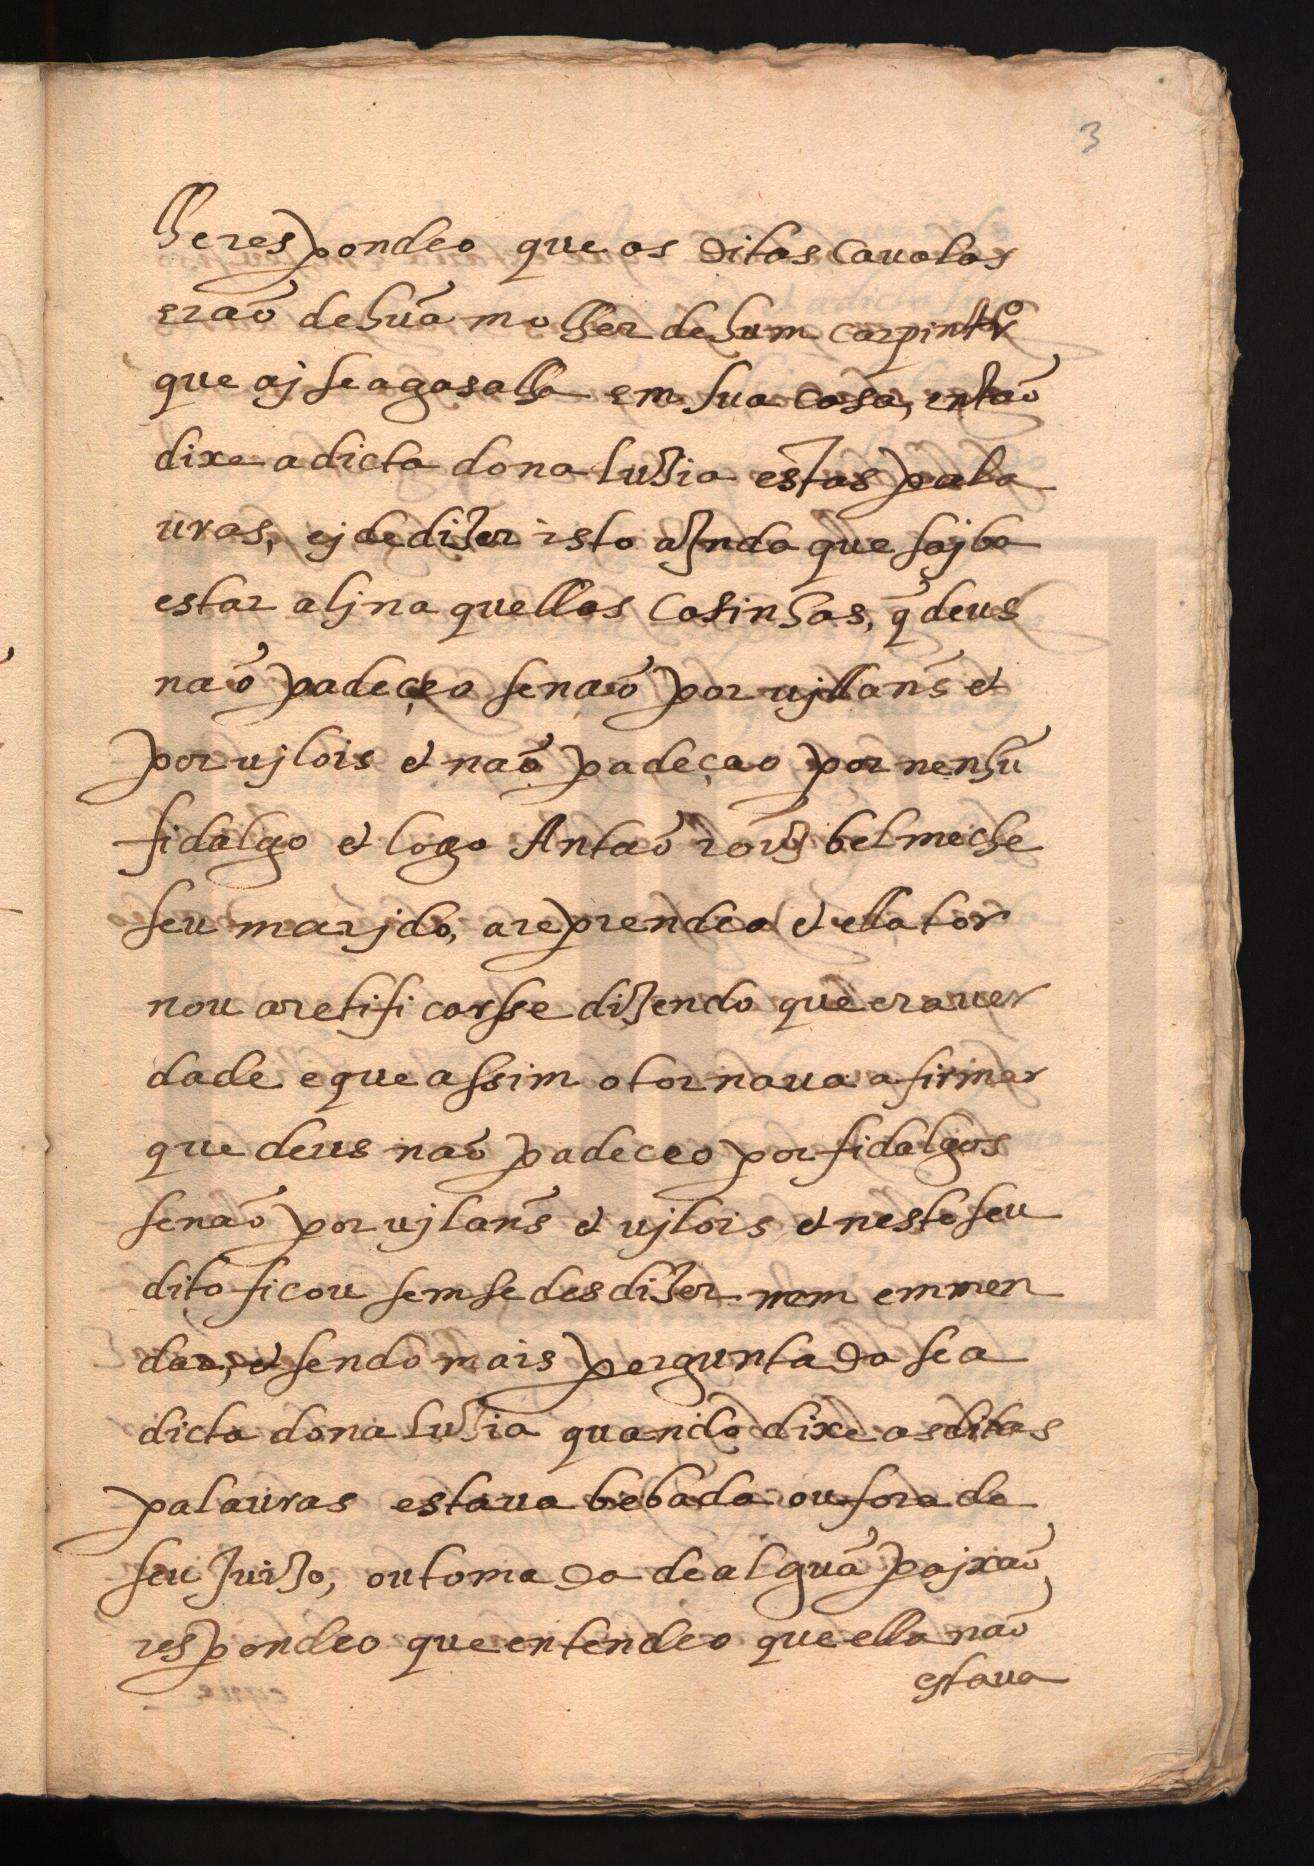 3
lhe respondeo que as ditas cavalas
erão de huã molher de hum carpintrº
que aj se agasalha em sua casa, então
dixe a dicta dona luzia estas pala
uras, ej de dizer isto ajnda que sajba
estar alj na quellas casinhas, q̃ deus
não padeçeo senão por ujllãns et
por ujlois et não padeçeo por nenhũ
fidalgo et logo Antão roiz belmeche
seu marjdo, a reprendeo et ella tor
nou a retificarsse dizendo que era uer
dade e que assim o tornaua afirmar
que deus não padeceo por fidalgos
senão por ujlãns et ujlois et neste seu
dito ficou sem se desdizer nem emmen
dar, et sendo mais perguntada se a
dicta dona luzia quando dixe as ditas
palauras estaua bebada ou fora de
seu Juizo, ou tomada de alguã pajxão
respondeo que entendeo que ella não
estaua